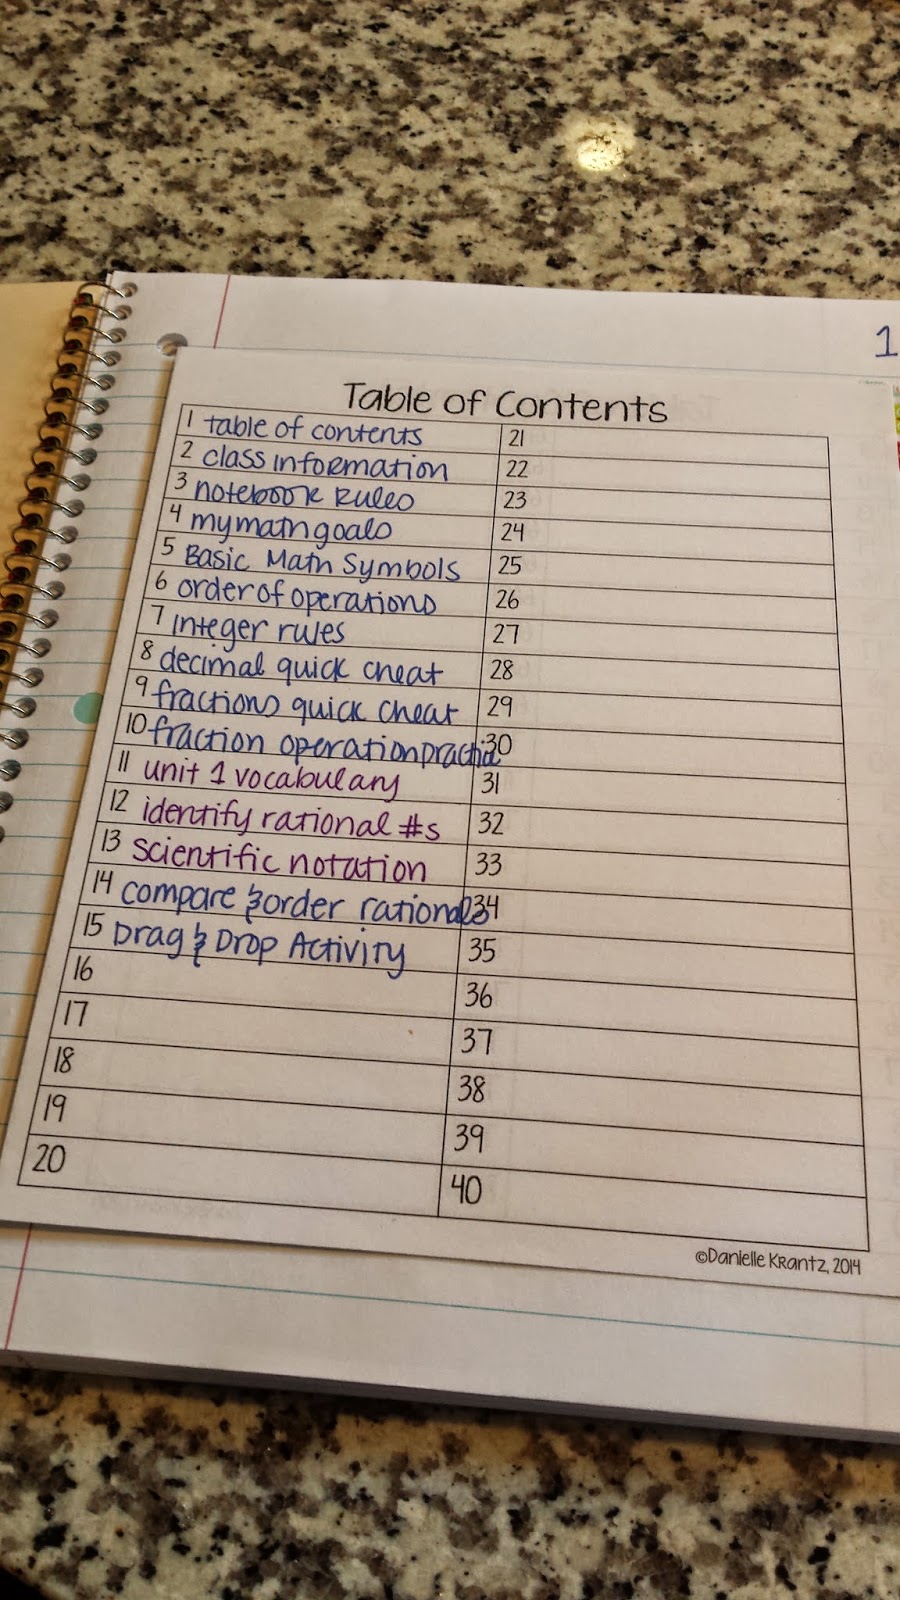 1
Table of Contents
1 table of contents
2 class information
3 notebook rules
4 my math goals
5 Basic Math Symbols
6 order of operations
7 integer rules
8 decimal quick cheat
9 fractions quick cheat
10 fraction operation practice
11 unit 1 vocabulary
12 identify rational #s
13 scientific notation
14 compare & order rationals
15 Drag & Drop Activity
16
17
18
19
20
21
22
23
24
25
26
27
28
29
30
31
32
33
34
35
36
37
38
39
40
©Danielle Krantz, 2014